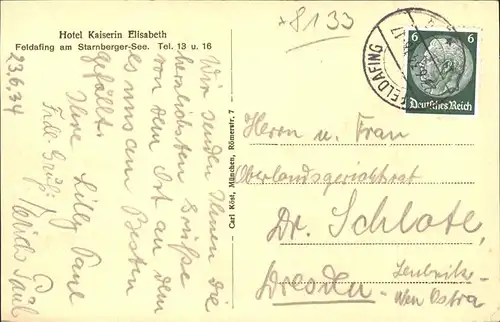 +8133
Hotel Kaiserin Elisabeth
Feldafing am Starnberger-See. Tel. 13 u. 16
23.6.34
Wir senden Ihnen die
herzlichsten Grüße
von dem Ort an dem
es uns am Besten
gefällt.
Ihre Lilly Paul
Frdl. Gruß!
Paul
Carl Köst, München, Römerstr. 7
FELDAFING
6 6
Deutsches Reich
Herrn u. Frau
Oberlandsgerichtsrat
Dr. Schlote,
Dresden
Leubnitz-
Ostra